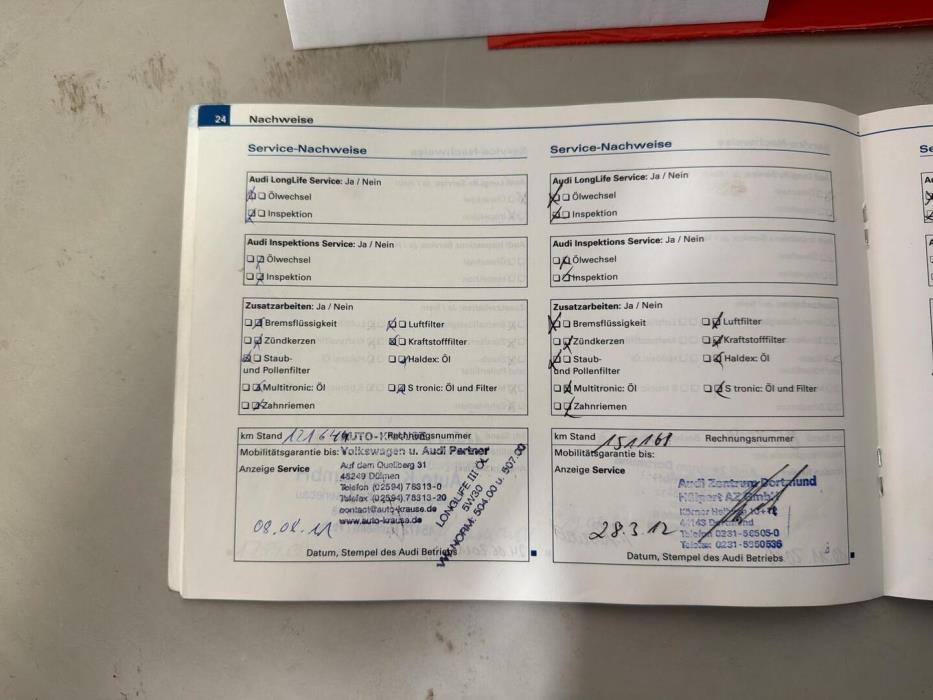 24 Nachweise
Service-Nachweise
Audi LongLife Service: Ja / Nein
Ölwechsel
Inspektion
Audi Inspektions Service: Ja / Nein
Ölwechsel
Inspektion
Zusatzarbeiten: Ja / Nein
Bremsflüssigkeit Luftfilter
Zündkerzen Kraftstofffilter
Staub- Haldex: Öl
und Pollenfilter
Multitronic: Öl S tronic: Öl und Filter
Zahnriemen
km Stand Rechnungsnummer
Mobilitätsgarantie bis: Volkswagen u. Audi Partner
Anzeige Service
Auf dem Quellberg 31
48249 Dülmen
Telefon (02594) 78313-0
Telefax (02594) 78313-20
contact@auto-krause.de
www.auto-krause.de
LONGLIFE III ÖL
5W30
VW NORM: 504.00 u. 507.00
Datum, Stempel des Audi Betriebs
Service-Nachweise
Audi LongLife Service: Ja / Nein
Ölwechsel
Inspektion
Audi Inspektions Service: Ja / Nein
Ölwechsel
Inspektion
Zusatzarbeiten: Ja / Nein
Bremsflüssigkeit Luftfilter
Zündkerzen Kraftstofffilter
Staub- Haldex: Öl
und Pollenfilter
Multitronic: Öl S tronic: Öl und Filter
Zahnriemen
km Stand 151168 Rechnungsnummer
Mobilitätsgarantie bis:
Anzeige Service
Audi Zentrum Dortmund
Hülpert AZ GmbH
44143 Dortmund
28.3.12
Datum, Stempel des Audi Betriebs